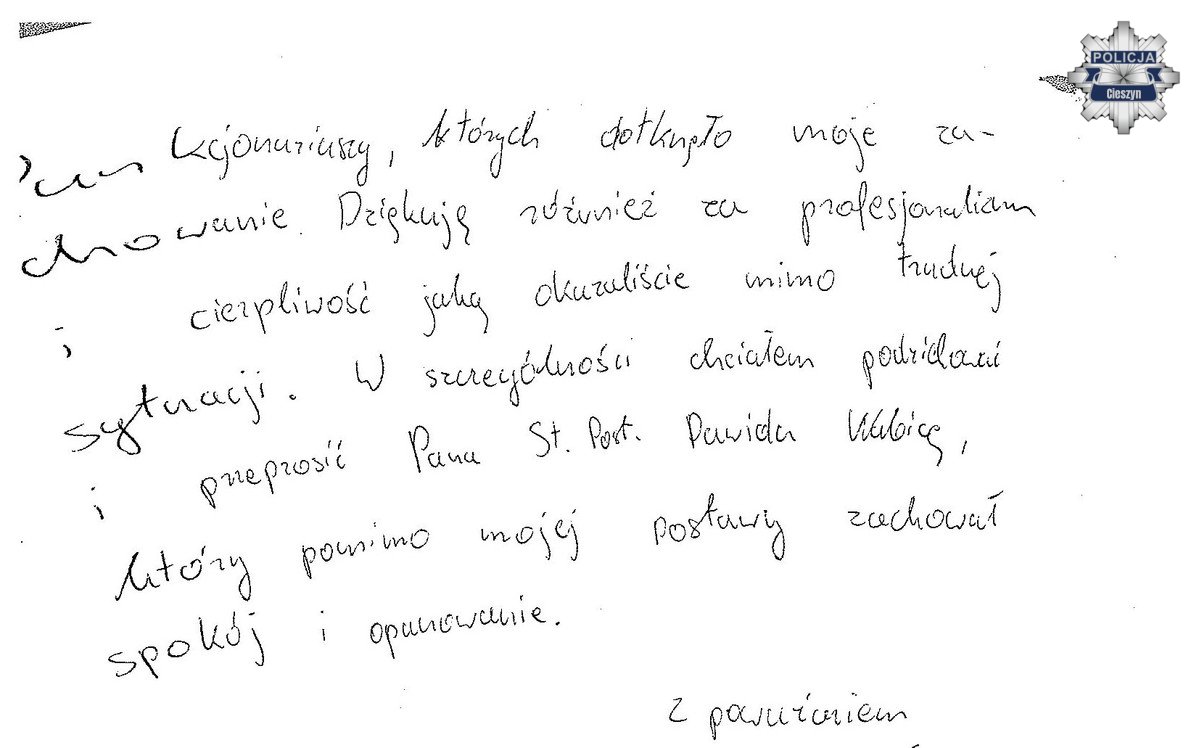 POLICJA
Cieszyn
funkcjonariuszy, których dotknęło moje za-
chowanie. Dziękuję również za profesjonalizm
i cierpliwość jaką okazaliście mimo trudnej
sytuacji. W szczególności chciałem podziękować
i przeprosić Pana St. Post. Dawida
który pomimo mojej postawy zachował
spokój i opanowanie.
z poważaniem